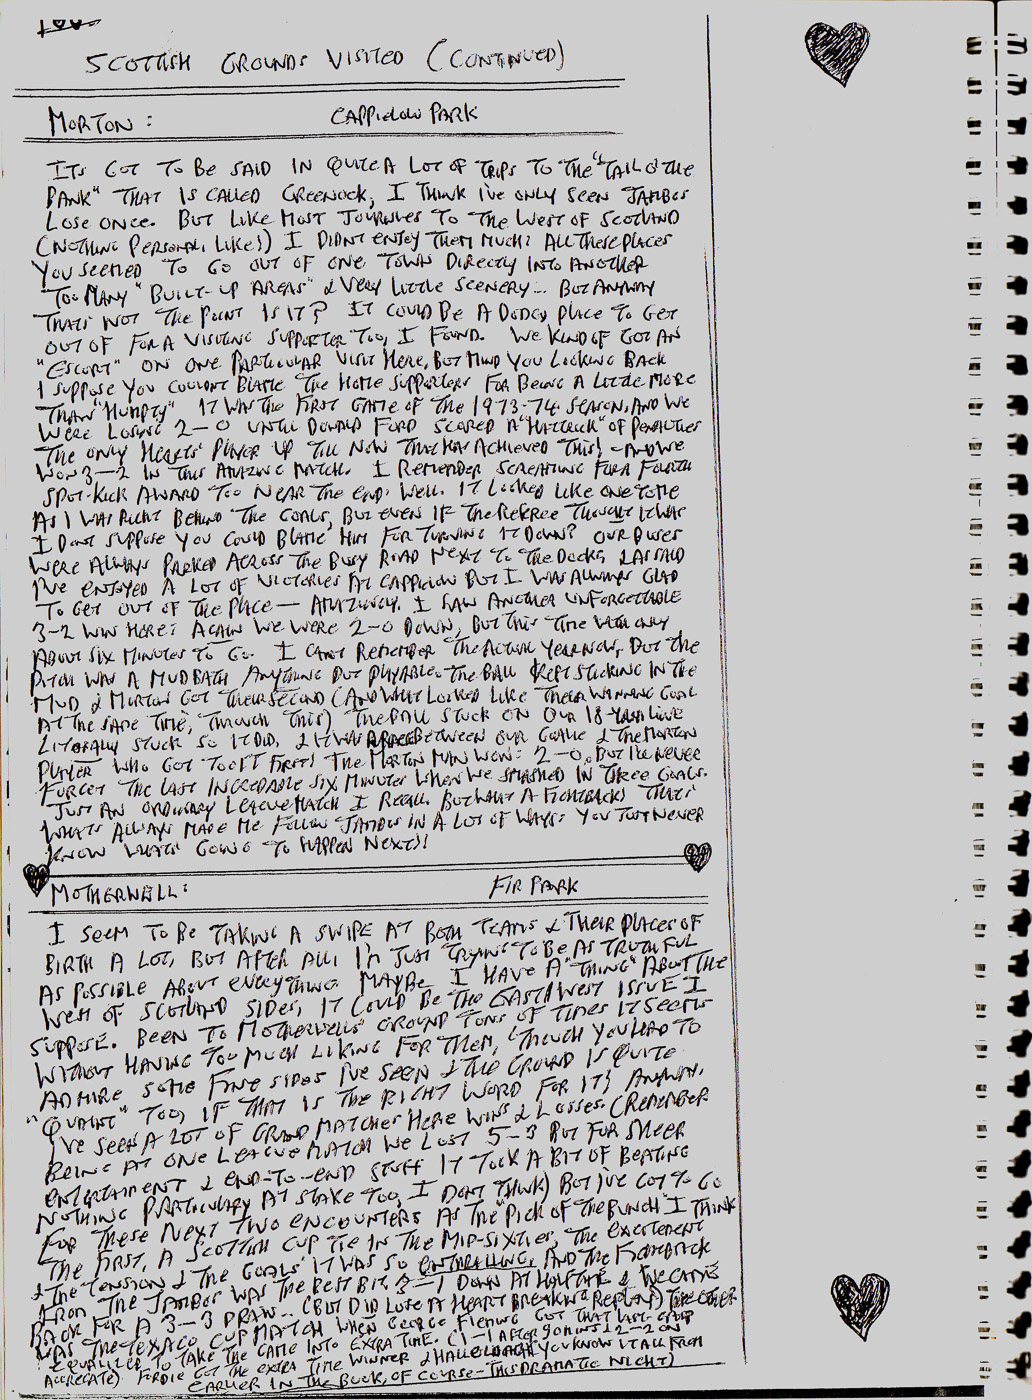 100
SCOTTISH GROUNDS VISITED (CONTINUED)
MORTON: CAPPIELOW PARK
ITS GOT TO BE SAID IN QUITE A LOT OF TRIPS TO THE "TAIL O THE
BANK" THAT IS CALLED GREENOCK, I THINK I'VE ONLY SEEN JAMBOS
LOSE ONCE. BUT LIKE MOST JOURNIES TO THE WEST OF SCOTLAND
(NOTHING PERSONAL, LIKE!) I DIDNT ENJOY THEM MUCH: ALL THESE PLACES
YOU SEEMED TO GO OUT OF ONE TOWN DIRECTLY INTO ANOTHER
TOO MANY "BUILT-UP AREAS" & VERY LITTLE SCENERY... BUT ANYWAY
THATS NOT THE POINT IS IT? IT COULD BE A DODGY PLACE TO GET
OUT OF FOR A VISITING SUPPORTER TOO, I FOUND. WE KIND OF GOT AN
"ESCORT" ON ONE PARTICULAR VISIT HERE, BUT MIND YOU LOOKING BACK
I SUPPOSE YOU COULDNT BLAME THE HOME SUPPORTERS FOR BEING A LITTLE MORE
THAN "HUMPTY". IT WAS THE FIRST GAME OF THE 1973-74 SEASON, AND WE
WERE LOSING 2-0 UNTIL DONALD FORD SCORED A "HATTRICK" OF PENALTIES
THE ONLY HEARTS PLAYER UP TILL NOW THAT HAS ACHIEVED THIS! - AND WE
WON 3-2 IN THIS AMAZING MATCH. I REMEMBER SCREAMING FOR A FOURTH
SPOT-KICK AWARD TOO NEAR THE END: WELL. IT LOOKED LIKE ONE TO ME
AS I WAS RIGHT BEHIND THE GOALS, BUT EVEN IF THE REFEREE THOUGHT IT WAS
I DONT SUPPOSE YOU COULD BLAME HIM FOR TURNING IT DOWN? OUR BUSES
WERE ALWAYS PARKED ACROSS THE BUSY ROAD NEXT TO THE DOCKS, & AS I SAID
I'VE ENJOYED A LOT OF VICTORIES AT CAPPIELOW BUT I WAS ALWAYS GLAD
TO GET OUT OF THE PLACE — AMAZINGLY, I SAW ANOTHER UNFORGETTABLE
3-2 WIN HERE: AGAIN WE WERE 2-0 DOWN, BUT THIS TIME WITH ONLY
ABOUT SIX MINUTES TO GO. I CANT REMEMBER THE ACTUAL YEAR NOW, BUT THE
PITCH WAS A MUDBATH ANYTHING BUT PLAYABLE. THE BALL KEPT STICKING IN THE
MUD & MORTON GOT THEIR SECOND (AND WHAT LOOKED LIKE THEIR WINNING GOAL
AT THE SAME TIME, THROUGH THIS) THE BALL STUCK ON OUR 18-YARD LINE
LITERALLY STUCK SO IT DID, & IT WAS A RACE BETWEEN OUR GOALIE & THE MORTON
PLAYER WHO GOT TO IT FIRST! THE MORTON MAN WON: 2-0, BUT I'LL NEVER
FORGET THE LAST INCREDABLE SIX MINUTES WHEN WE SMASHED IN THREE GOALS.
JUST AN ORDINARY LEAGUE MATCH I RECALL. BUT WHAT A FIGHTBACK! THATS
WHATS ALWAYS MADE ME FOLLOW JAMBOS IN A LOT OF WAYS: YOU JUST NEVER
KNOW WHATS GOING TO HAPPEN NEXT!!
MOTHERWELL: FIR PARK
I SEEM TO BE TAKING A SWIPE AT BOTH TEAMS & THEIR PLACES OF
BIRTH A LOT, BUT AFTER ALL, I'M JUST TRYING TO BE AS TRUTHFUL
AS POSSIBLE ABOUT EVERYTHING. MAYBE I HAVE A "THING" ABOUT THE
WEST OF SCOTLAND SIDES, IT COULD BE THE EAST/WEST ISSUE I
SUPPOSE. BEEN TO MOTHERWELLS GROUND TONS OF TIMES IT SEEMS
WITHOUT HAVING TOO MUCH LIKING FOR THEM, (THOUGH YOU HAD TO
ADMIRE SOME FINE SIDES I'VE SEEN & THE GROUND IS QUITE
"QUAINT" TOO, IF THAT IS THE RIGHT WORD FOR IT) ANYWAY,
I'VE SEEN A LOT OF GRAND MATCHES HERE WINS & LOSSES. (REMEMBER
BEING AT ONE LEAGUE MATCH WE LOST 5-3 BUT FOR SHEER
ENTERTAINMENT & END-TO-END STUFF IT TOOK A BIT OF BEATING
NOTHING PARTICULARY AT STAKE TOO, I DONT THINK) BUT I'VE GOT TO GO
FOR THESE NEXT TWO ENCOUNTERS AS THE "PICK OF THE BUNCH" I THINK
THE FIRST, A SCOTTISH CUP TIE IN THE MID-SIXTIES, THE EXCITEMENT
& THE TENSION & THE GOALS IT WAS SO ENTHRALLING, AND THE FIGHTBACK
FROM THE JAMBOS WAS THE BEST BIT. 3-1 DOWN AT HALF TIME & WE CAME
BACK FOR A 3-3 DRAW... (BUT DID LOSE A HEART BREAKING REPLAY) THE OTHER
WAS THE TEXACO CUP MATCH WHEN GEORGE FLEMING GOT THAT LAST GASP
EQUALIZER TO TAKE THE GAME INTO EXTRA TIME. (1-1 AFTER 90 MINS & 2-2 ON
AGGREGATE) FORDIE GOT THE EXTRA TIME WINNER & YOU KNOW IT ALL FROM
EARLIER IN THE BOOK, OF COURSE - THIS DRAMATIC NIGHT)